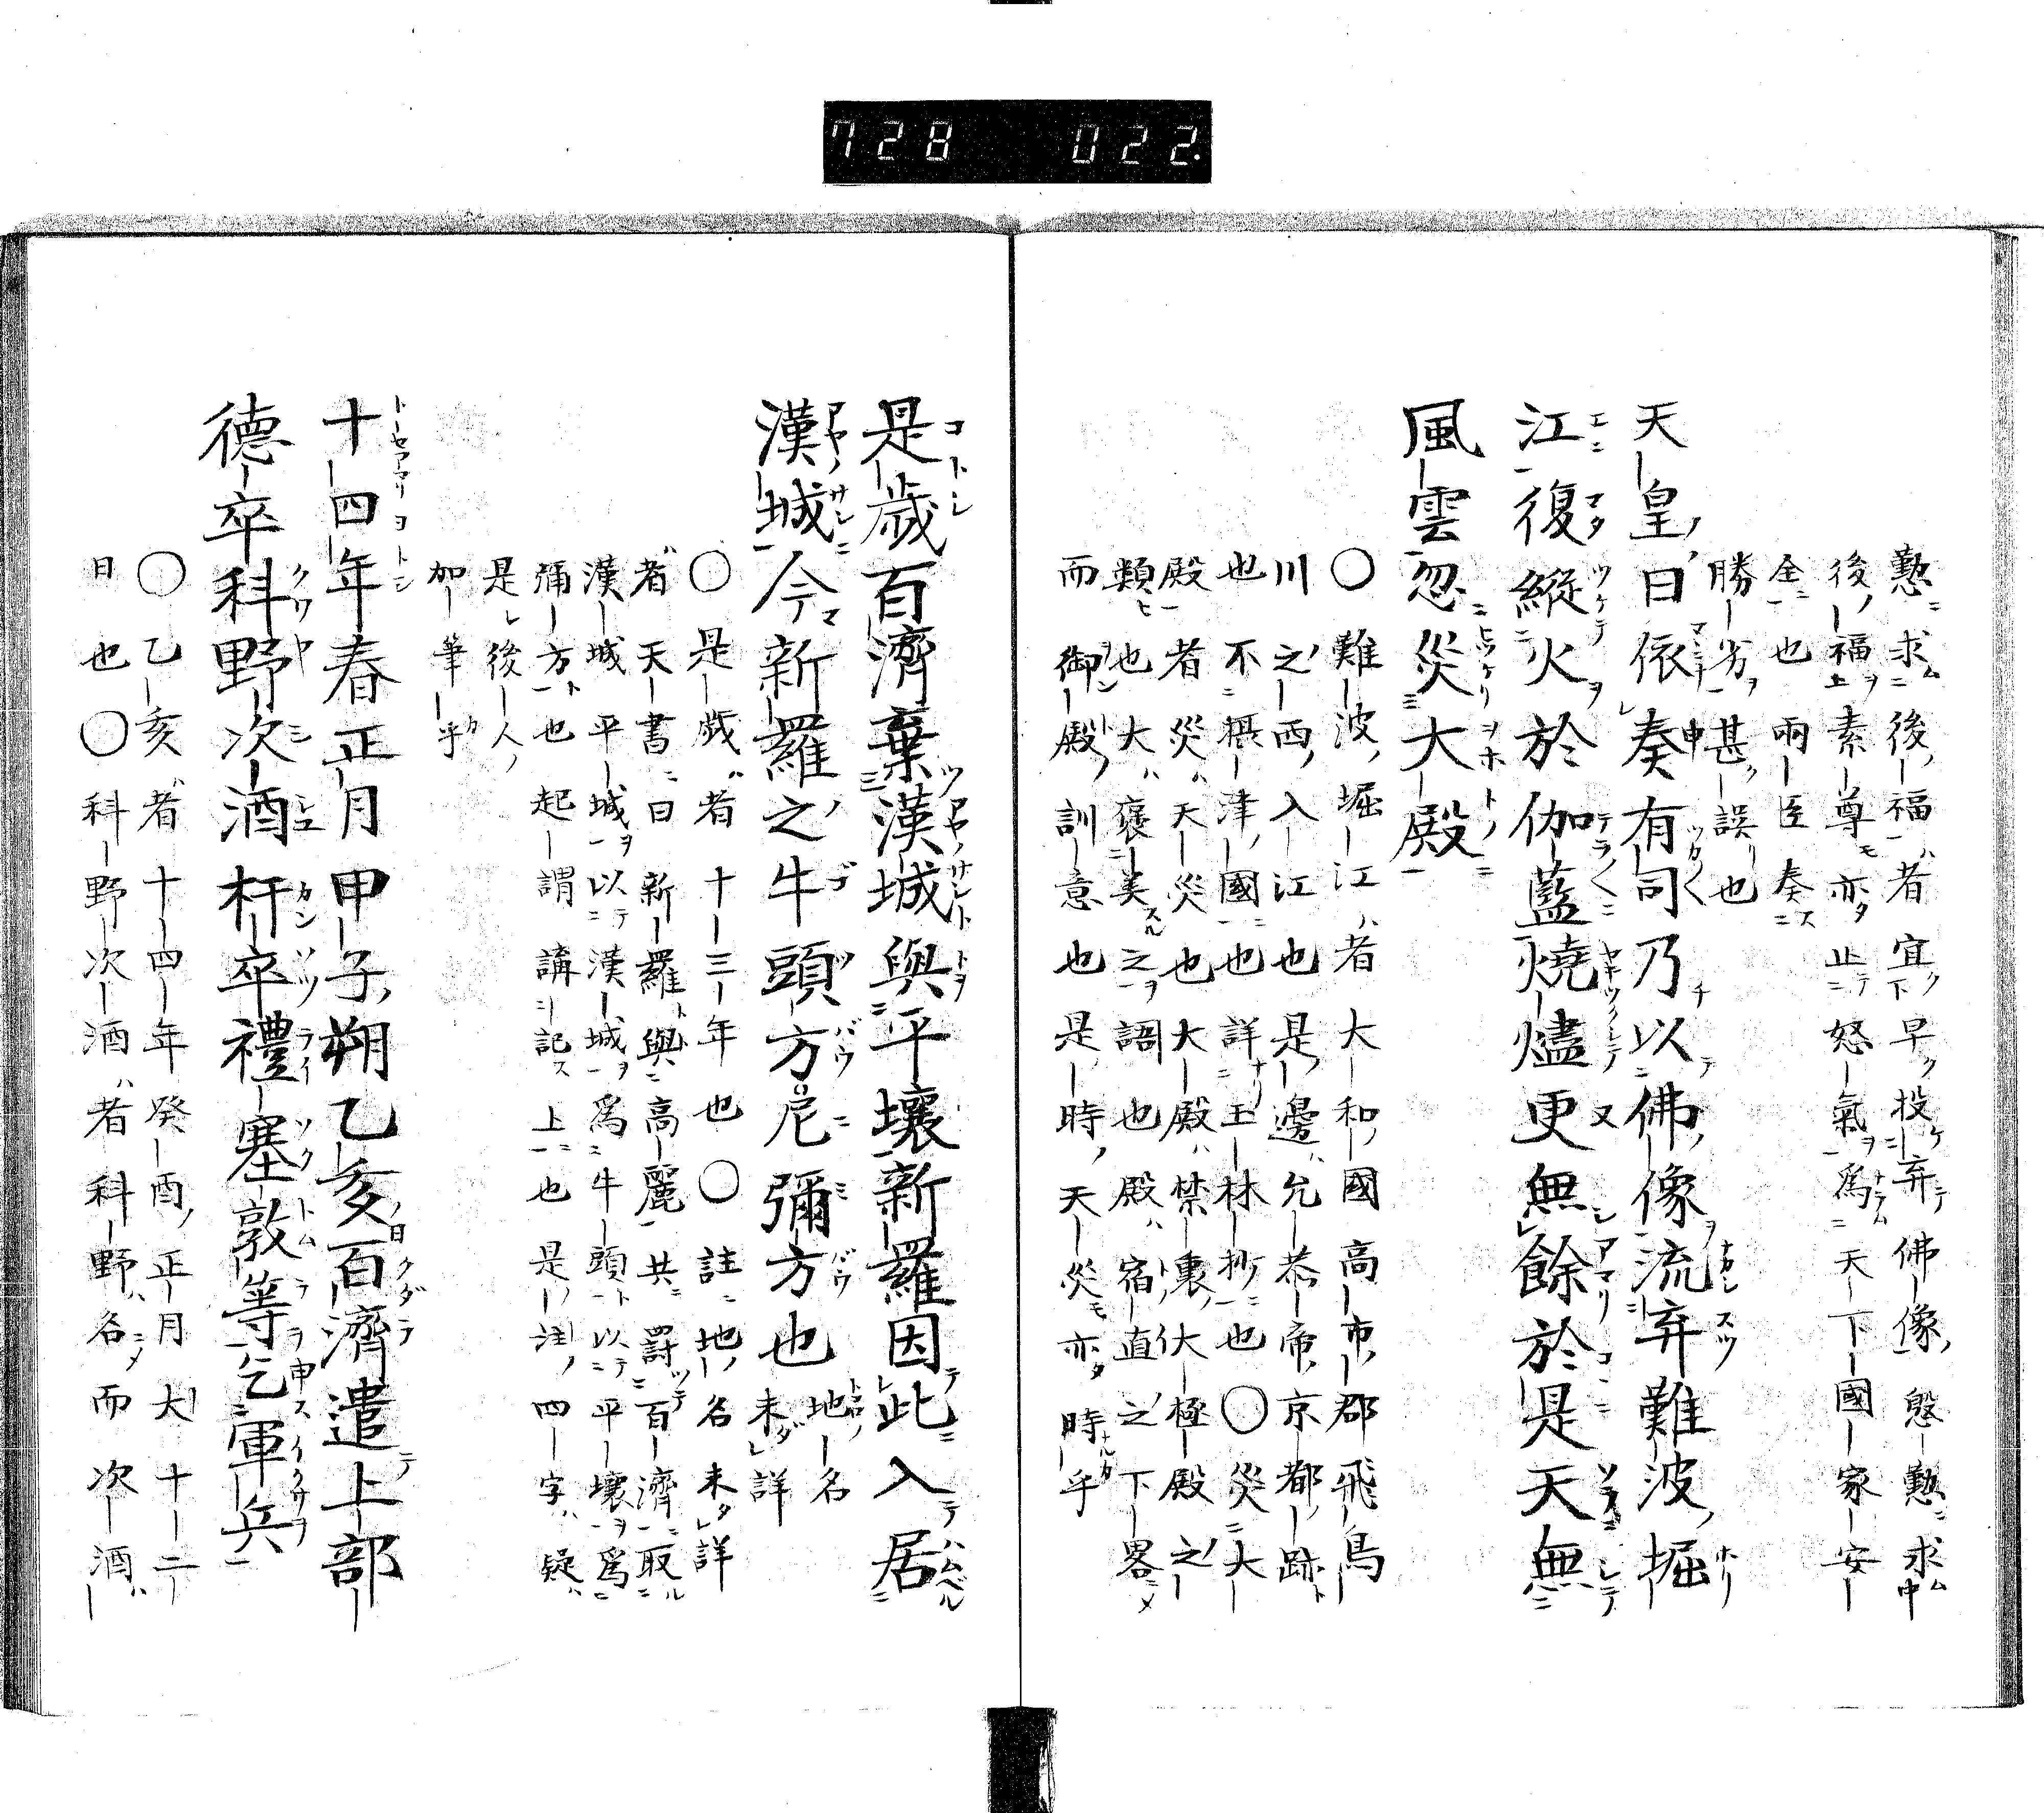 728 022.
懃求後福者宜早投弃佛像慇懃求中
後福上素尊亦止怒氣為天下國家安
全也兩臣奏
勝劣甚誤也
天皇曰依奏有司乃以佛像流弃難波堀
江復縱火於伽藍燒燼更無餘於是天無
風雲忽災大殿
〇難波堀江者大和國高市郡飛鳥
川之西入江也是邊允恭帝京都跡
也不摂津國也詳玉林抄也〇災大
殿者災天災也大殿禁裏大極殿之
類也大褒美之語也殿宿直之下畧
而御殿訓意也是時天災亦時乎
是歳百濟棄漢城與平壤新羅因此入居
漢城今新羅之牛頭方尼彌方也地名未詳
〇是歲者十三年也〇註地名未詳
者天書曰新羅與高麗共罸百濟取
漢城平城以漢城為牛頭以平壤為
弥方也起謂講記上也是注四字疑
是後人
加筆乎
十四年春正月甲子朔乙亥百濟遣上部
德卒科野次酒杆卒禮塞敦等乞軍兵
〇乙亥者十四年癸酉正月大十二
日也〇科野次酒者科野名而次酒